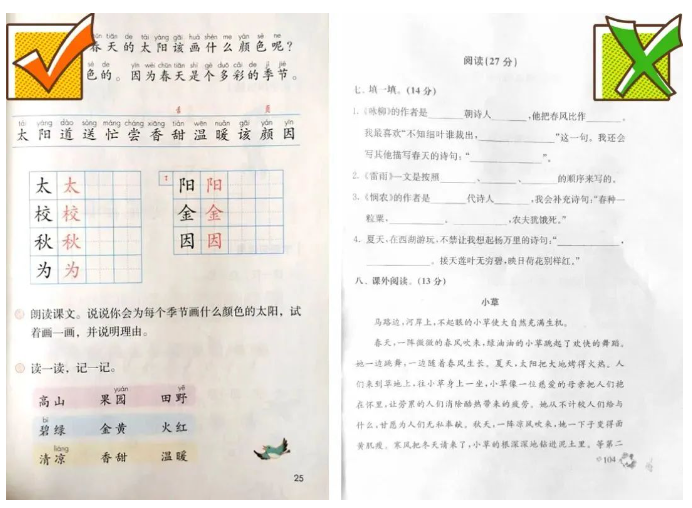 tiān de tài yáng gāi huà shén me yán sè ne
春天的太阳该画什么颜色呢?
sè de yīn wèi chūn tiān shì gè duō cǎi de jì jié
色的。因为春天是个多彩的季节。
tài yáng dào sòng máng cháng xiāng tián wēn nuǎn gāi yán yīn
太阳道送忙尝香甜温暖该颜因
太 太
校 校
秋 秋
为 为
阳 阳
金 金
因 因
朗读课文。说说你会为每个季节画什么颜色的太阳,试
着画一画,并说明理由。
读一读,记一记。
yuán yě
高山 果园 田野
bì
碧绿 金黄 火红
liáng
清凉 香甜 温暖
25
阅读(27分)
七、填一填。(14分)
1.《咏柳》的作者是______朝诗人______,他把春风比作______,
我最喜欢“不知细叶谁裁出,____________”这一句。我还会
写其他描写春天的诗句:“____________”。
2.《雷雨》一文是按照______、______、______的顺序来写的。
3.《悯农》的作者是______代诗人______,我会补充诗句:“春种一
粒粟,____________。____________,农夫犹饿死。”
4. 夏天,在西湖游玩,不禁让我想起杨万里的诗句:“____________,
____________。接天莲叶无穷碧,映日荷花别样红。”
八、课外阅读。(13分)
小草
马路边,河岸上,不起眼的小草使大自然充满生机。
春天,一阵微微的春风吹来,绿油油的小草跳起了欢快的舞蹈。
她一边跳舞,一边随着春风生长。夏天,太阳把大地烤得火热。人
们来到草地上,往小草身上一坐,小草像一位慈爱的母亲把人们抱
在怀里,让劳累的人们消除酷热带来的疲劳。她从不计较人们给与
什么,甘愿为人们无私奉献。秋天,一阵凉风吹来,她一下子变得面
黄肌瘦。寒风把冬天请来了,小草的根深深地钻进泥土里。等第二
104